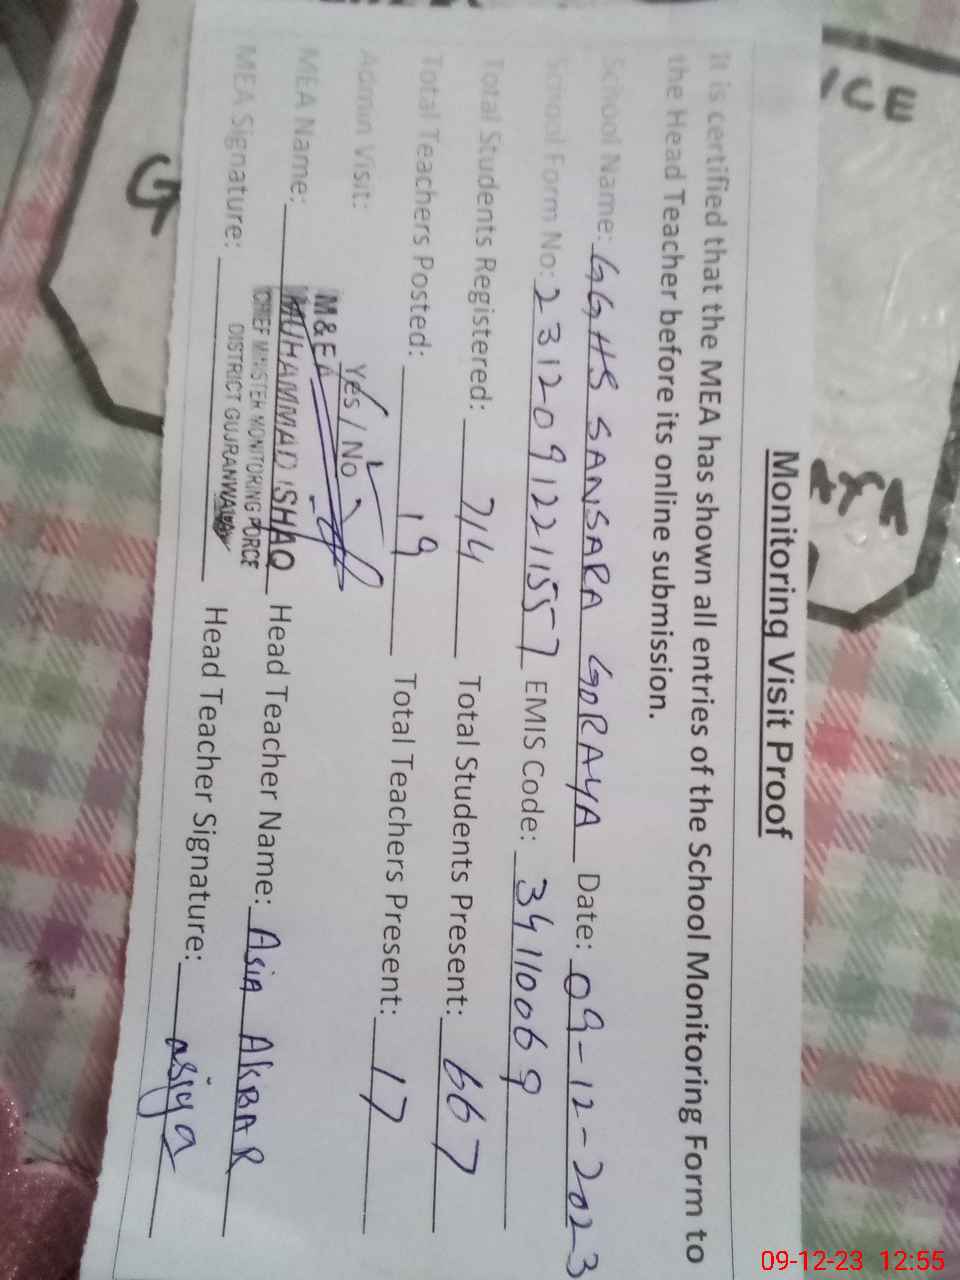 Monitoring Visit Proof
It is certified that the MEA has shown all entries of the School Monitoring Form to
the Head Teacher before its online submission.
School Name: GGHS SANSARA GORAYA Date: 09-12-2023
School Form No: 2312091221157 EMIS Code: 34110069
Total Students Registered: 714 Total Students Present: 667
Total Teachers Posted: 19 Total Teachers Present: 17
Admin Visit: Yes / No
M&EA
MEA Name: MUHAMMAD ISHAQ Head Teacher Name: Asia AKBAR
CHIEF MINISTER MONITORING FORCE
MEA Signature: DISTRICT GUJRANWALA Head Teacher Signature: asiya
09-12-23 12:55